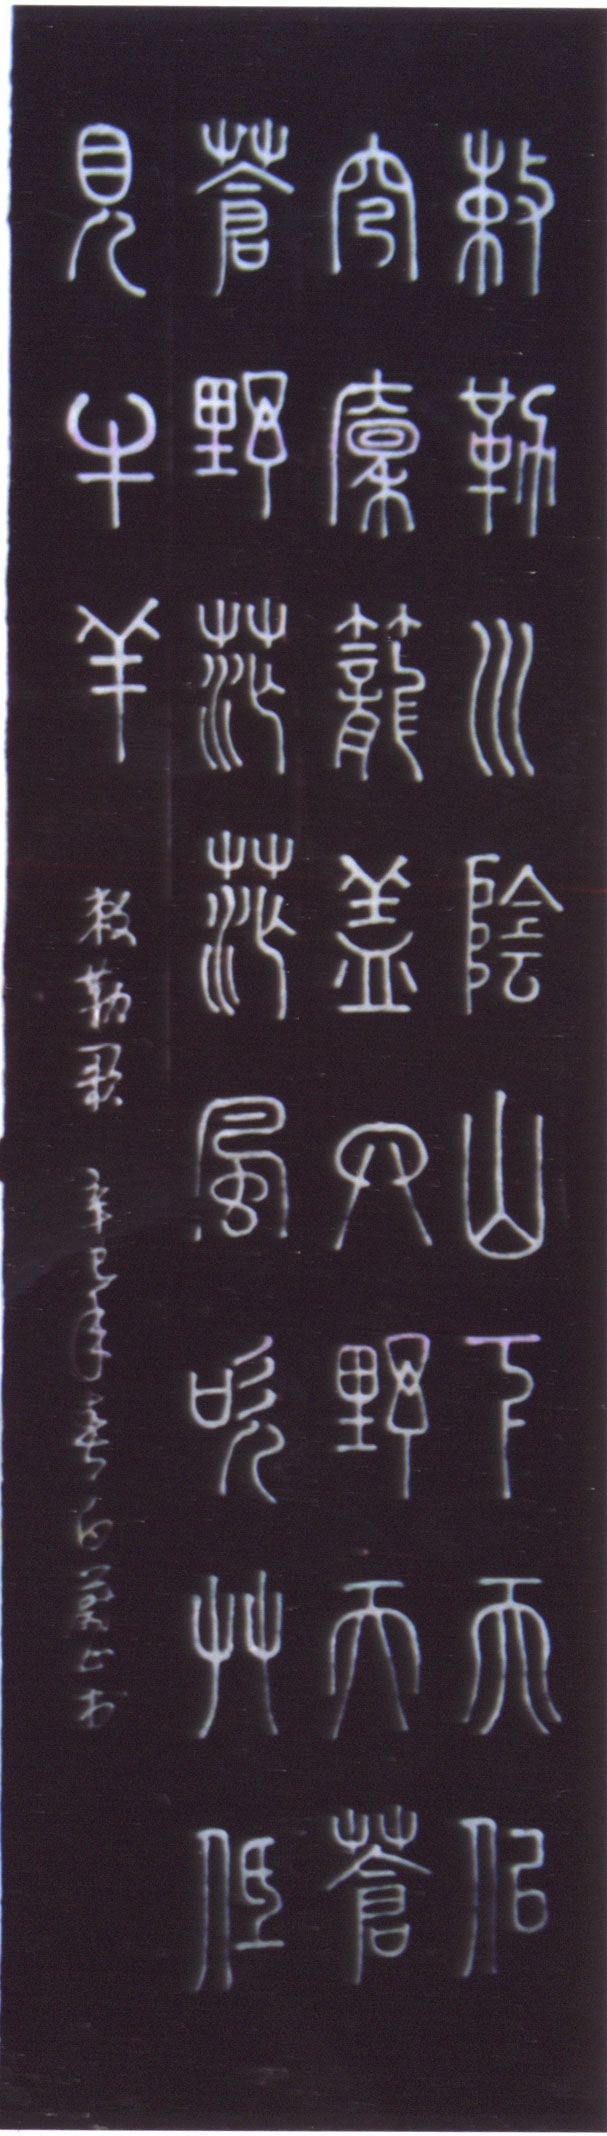 敕勒川陰山下天似
穹廬籠盖四野天蒼
蒼野茫茫風吹艸低
見牛羊
敕勒歌 辛巳年春